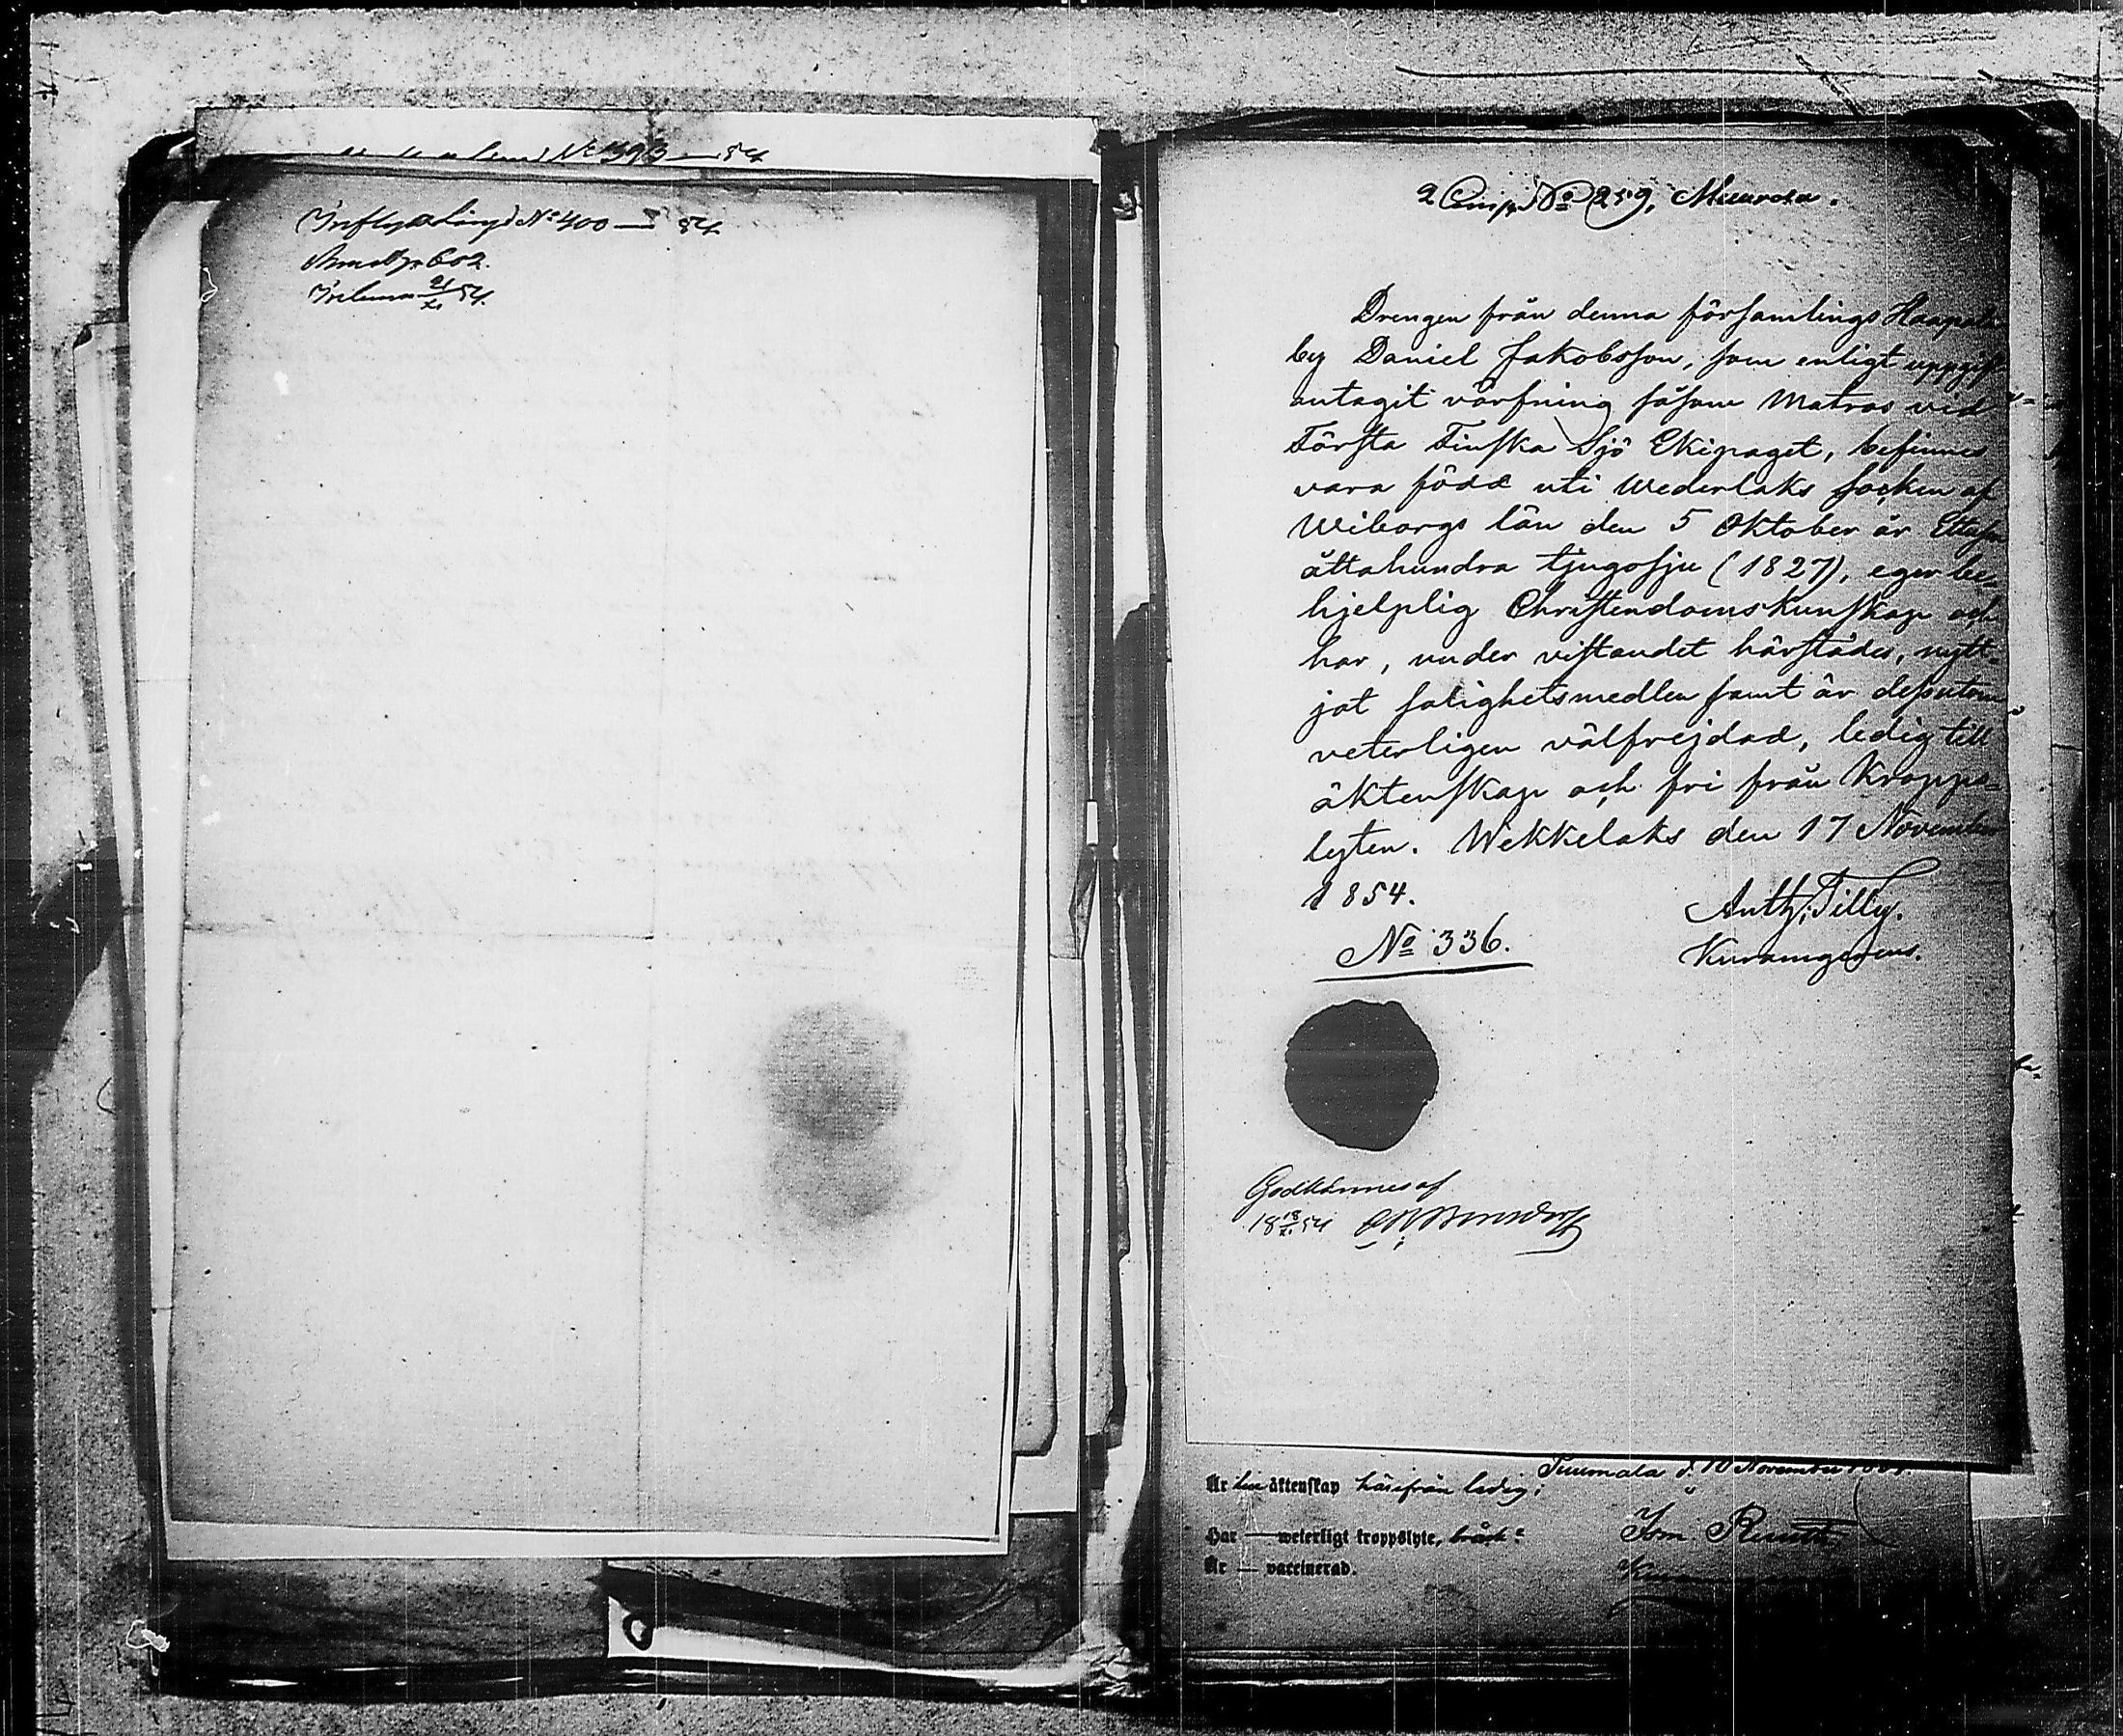 N:o 393 — 54
Inflytn.längd N:o 400 — 54
602.
21/XI 54.
2 Comp. N:o 259, Muurola.
Drengen från denna församlings Haapala
by Daniel Jakobsson, som enligt uppgift
antagit värfning såsom Matros vid
Första Finska Sjö Ekipaget, befinnes
vara född uti Wederlaks socken af
Wiborgs län den 5 Oktober år Ettusen
åttahundra tjugosju (1827), eger be-
hjelplig Christendomskunskap och
har, under vistandet härstädes, nytt-
jat salighetsmedlen samt är dessutom
veterligen välfrejdad, ledig till
äktenskap och fri från Kropps-
lyten. Wekkelaks den 17 November
1854.
Anth. Tilly.
N:o 336.
Kyrkoherde
Godkännes af
18 18/XI 54
Är till äktenskap härifrån ledig;
Puumala d. 10 November
Har — weterligt kroppslyte, bråck.
Är — vaccinerad.